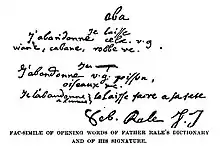 aba
je laisse
j'abandonne cela. v.g
want, cabane, robbe &c.
j'abandonne v.g. poisson,
oiseaux &c.
je l'abandonne je la laisse faire a sa teste
Seb. Rale S J
FAC-SIMILE OF OPENING WORDS OF FATHER RALE'S DICTIONARY
AND OF HIS SIGNATURE.